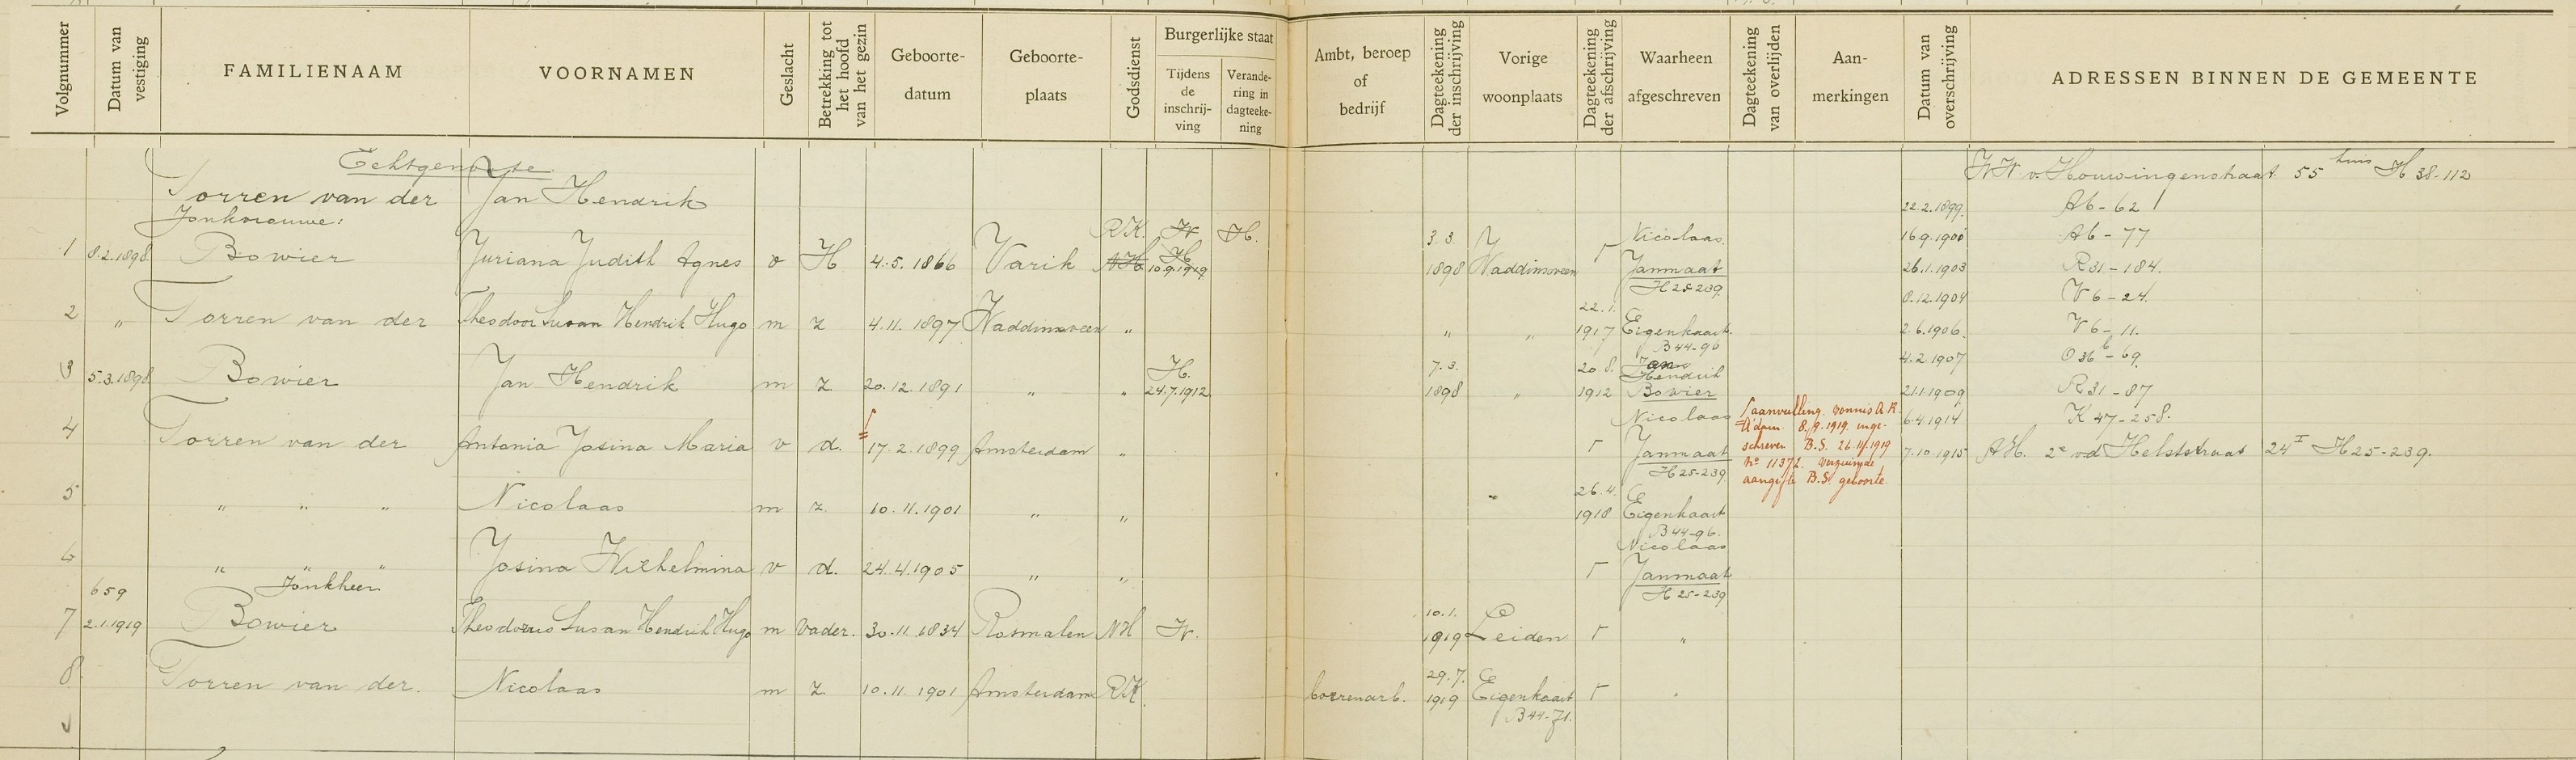 Volgnummer
Datum van vestiging
FAMILIENAAM
VOORNAMEN
Geslacht
Betrekking tot het hoofd van het gezin
Geboorte-datum
Geboorte-plaats
Godsdienst
Burgerlijke staat
Tijdens de inschrij-ving
Verande-ring in dagteeke-ning
Ambt, beroep of bedrijf
Dagteekening der inschrijving
Vorige woonplaats
Dagteekening der afschrijving
Waarheen afgeschreven
Dagteekening van overlijden
Aan-merkingen
Datum van overschrijving
ADRESSEN BINNEN DE GEMEENTE
Echtgenoote
Torren van der Jan Hendrik
Jonkvrouwe:
1 8.2.1898 Bowier Juriana Judith Agnes v H 4.5.1866 Varik N.H. R.K. W. H. 10.9.1919 H. 3.3. 1898 Waddinxveen Nicolaas Janmaat H 25-239
2 " Torren van der Theodoor Susan Hendrik Hugo m z 4.11.1897 Waddinxveen " " " 22.1. 1917 Eigenkaart B 44-96
3 5.3.1898 Bowier Jan Hendrik m z 20.12.1891 " " H. 24.7.1912 7.3. 1898 " 20.8. 1912 Jan Hendrik Bowier
4 Torren van der Antonia Josina Maria v d. 17.2.1899 Amsterdam " Nicolaas Janmaat H 25-239
aanvulling vonnis A.R. A'dam 8.9.1919 inge-schreven B.S. 26.11.1919 No 11372 verzuimde aangifte B.S. geboorte
5 " " " Nicolaas m z. 10.11.1901 " " 26.4. 1918 Eigenkaart B 44-96.
6 " " " Josina Wilhelmina v d. 24.4.1905 " " Nicolaas Janmaat H 25-239
659 Jonkheer
7 2.1.1919 Bowier Theodorus Susan Hendrik Hugo m Vader. 30.11.1834 Rosmalen NH W. 10.1. 1919 Leiden "
8 Torren van der. Nicolaas m z 10.11.1901 Amsterdam RK 29.7. 1919 Eigenkaart B 44-71. "
v. Houwingenstraat 55 huis H 38-112
22.2.1899. A6-62
16.9.1900 A6-77
26.1.1903 R31-184.
8.12.1904 V6-24.
2.6.1906. V6-11.
4.2.1907 O 36 b-69.
21.1.1909 R31-87
6.4.1914 K 47-258.
7.10.1915 AH. 2e vd Helststraat 24 I H 25-239.